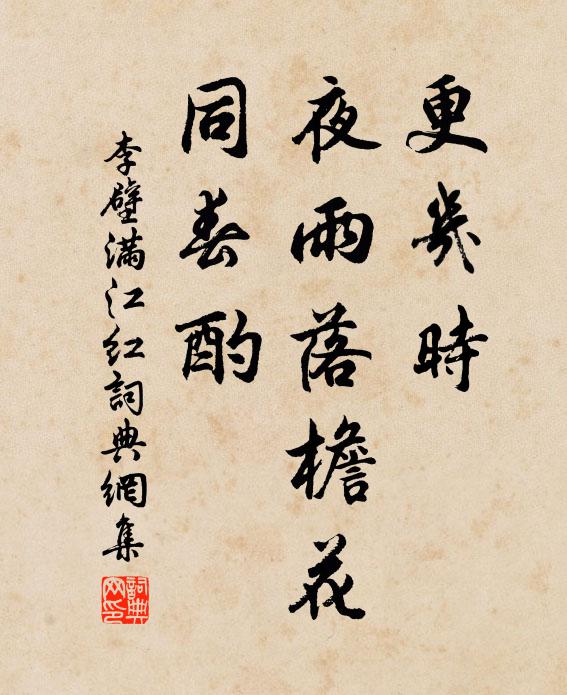 更幾時
夜雨落檐花
同春酌
李壁滿江紅詞典網集
詞典网印